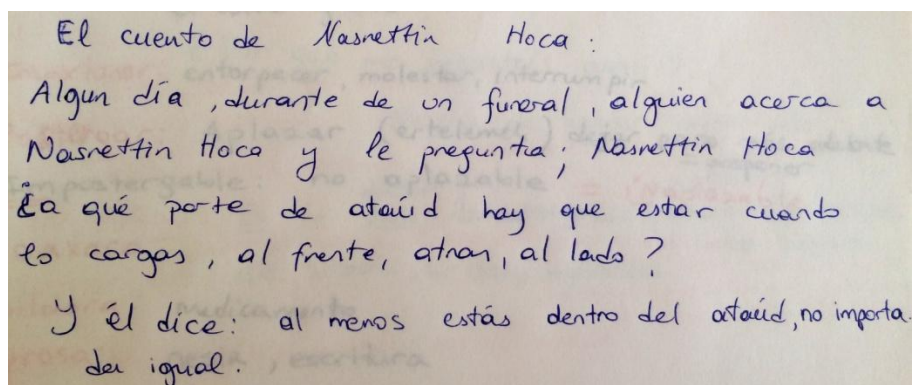 El cuento de Nasrettin Hoca:
Algun día, durante de un funeral, alguien acerca a
Nasrettin Hoca y le pregunta; Nasrettin Hoca
¿a qué parte de ataúd hay que estar cuando
lo cargas, al frente, atras, al lado?
Y él dice: al menos estás dentro del ataúd, no importa.
da igual.